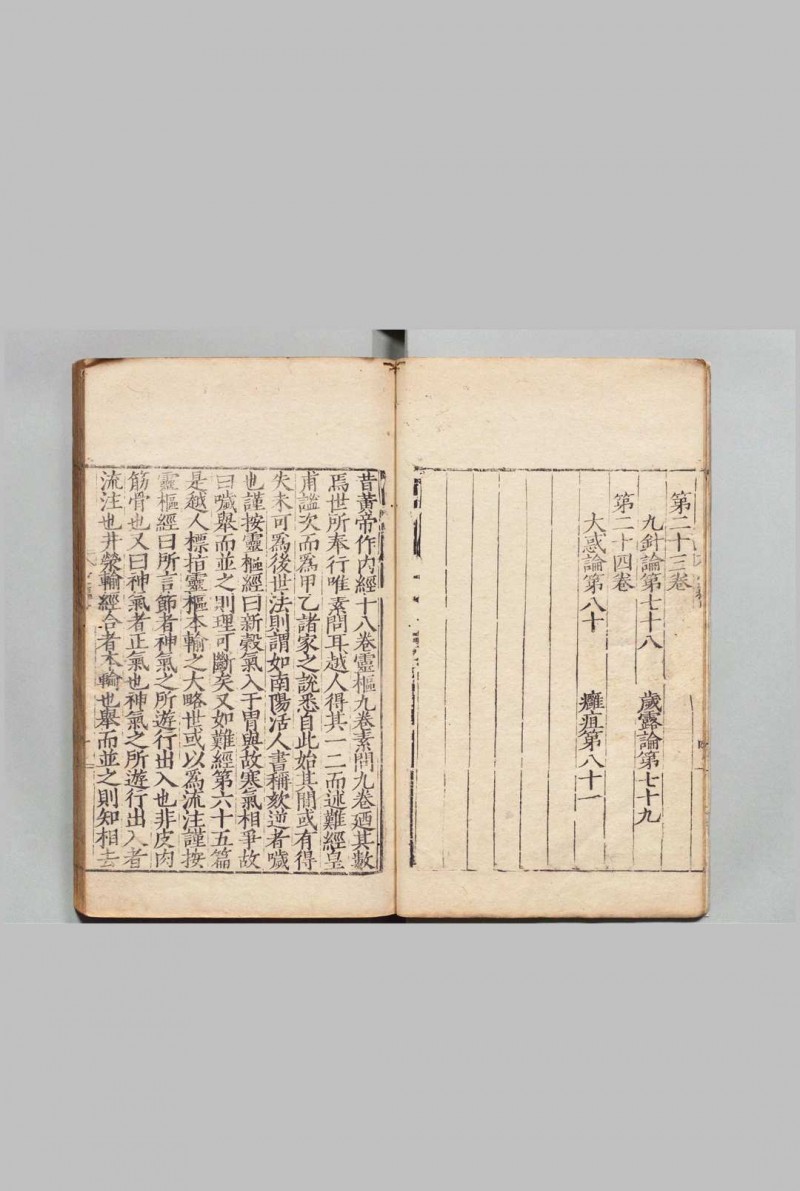 第二十三卷
九針論第七十八　歲露論第七十九
第二十四卷
大惑論第八十　癰疽第八十一
昔黃帝作內經十八卷靈樞九卷素問九卷廼其數
焉世所奉行唯素問耳越人得其一二而述難經皇
甫謐次而為甲乙諸家之說悉自此始其間或有得
失未可為後世法則謂如南陽活人書稱欬逆者噦
也謹按靈樞經曰新穀氣入于胃與故寒氣相爭故
曰噦舉而並之則理可斷矣又如難經第六十五篇
是越人標指靈樞本輸之大略世或以為流注謹按
靈樞經曰所言節者神氣之所遊行出入也非皮肉
筋骨也又曰神氣者正氣也神氣之所遊行出入者
流注也井滎輸經合者本輸也舉而並之則知相去